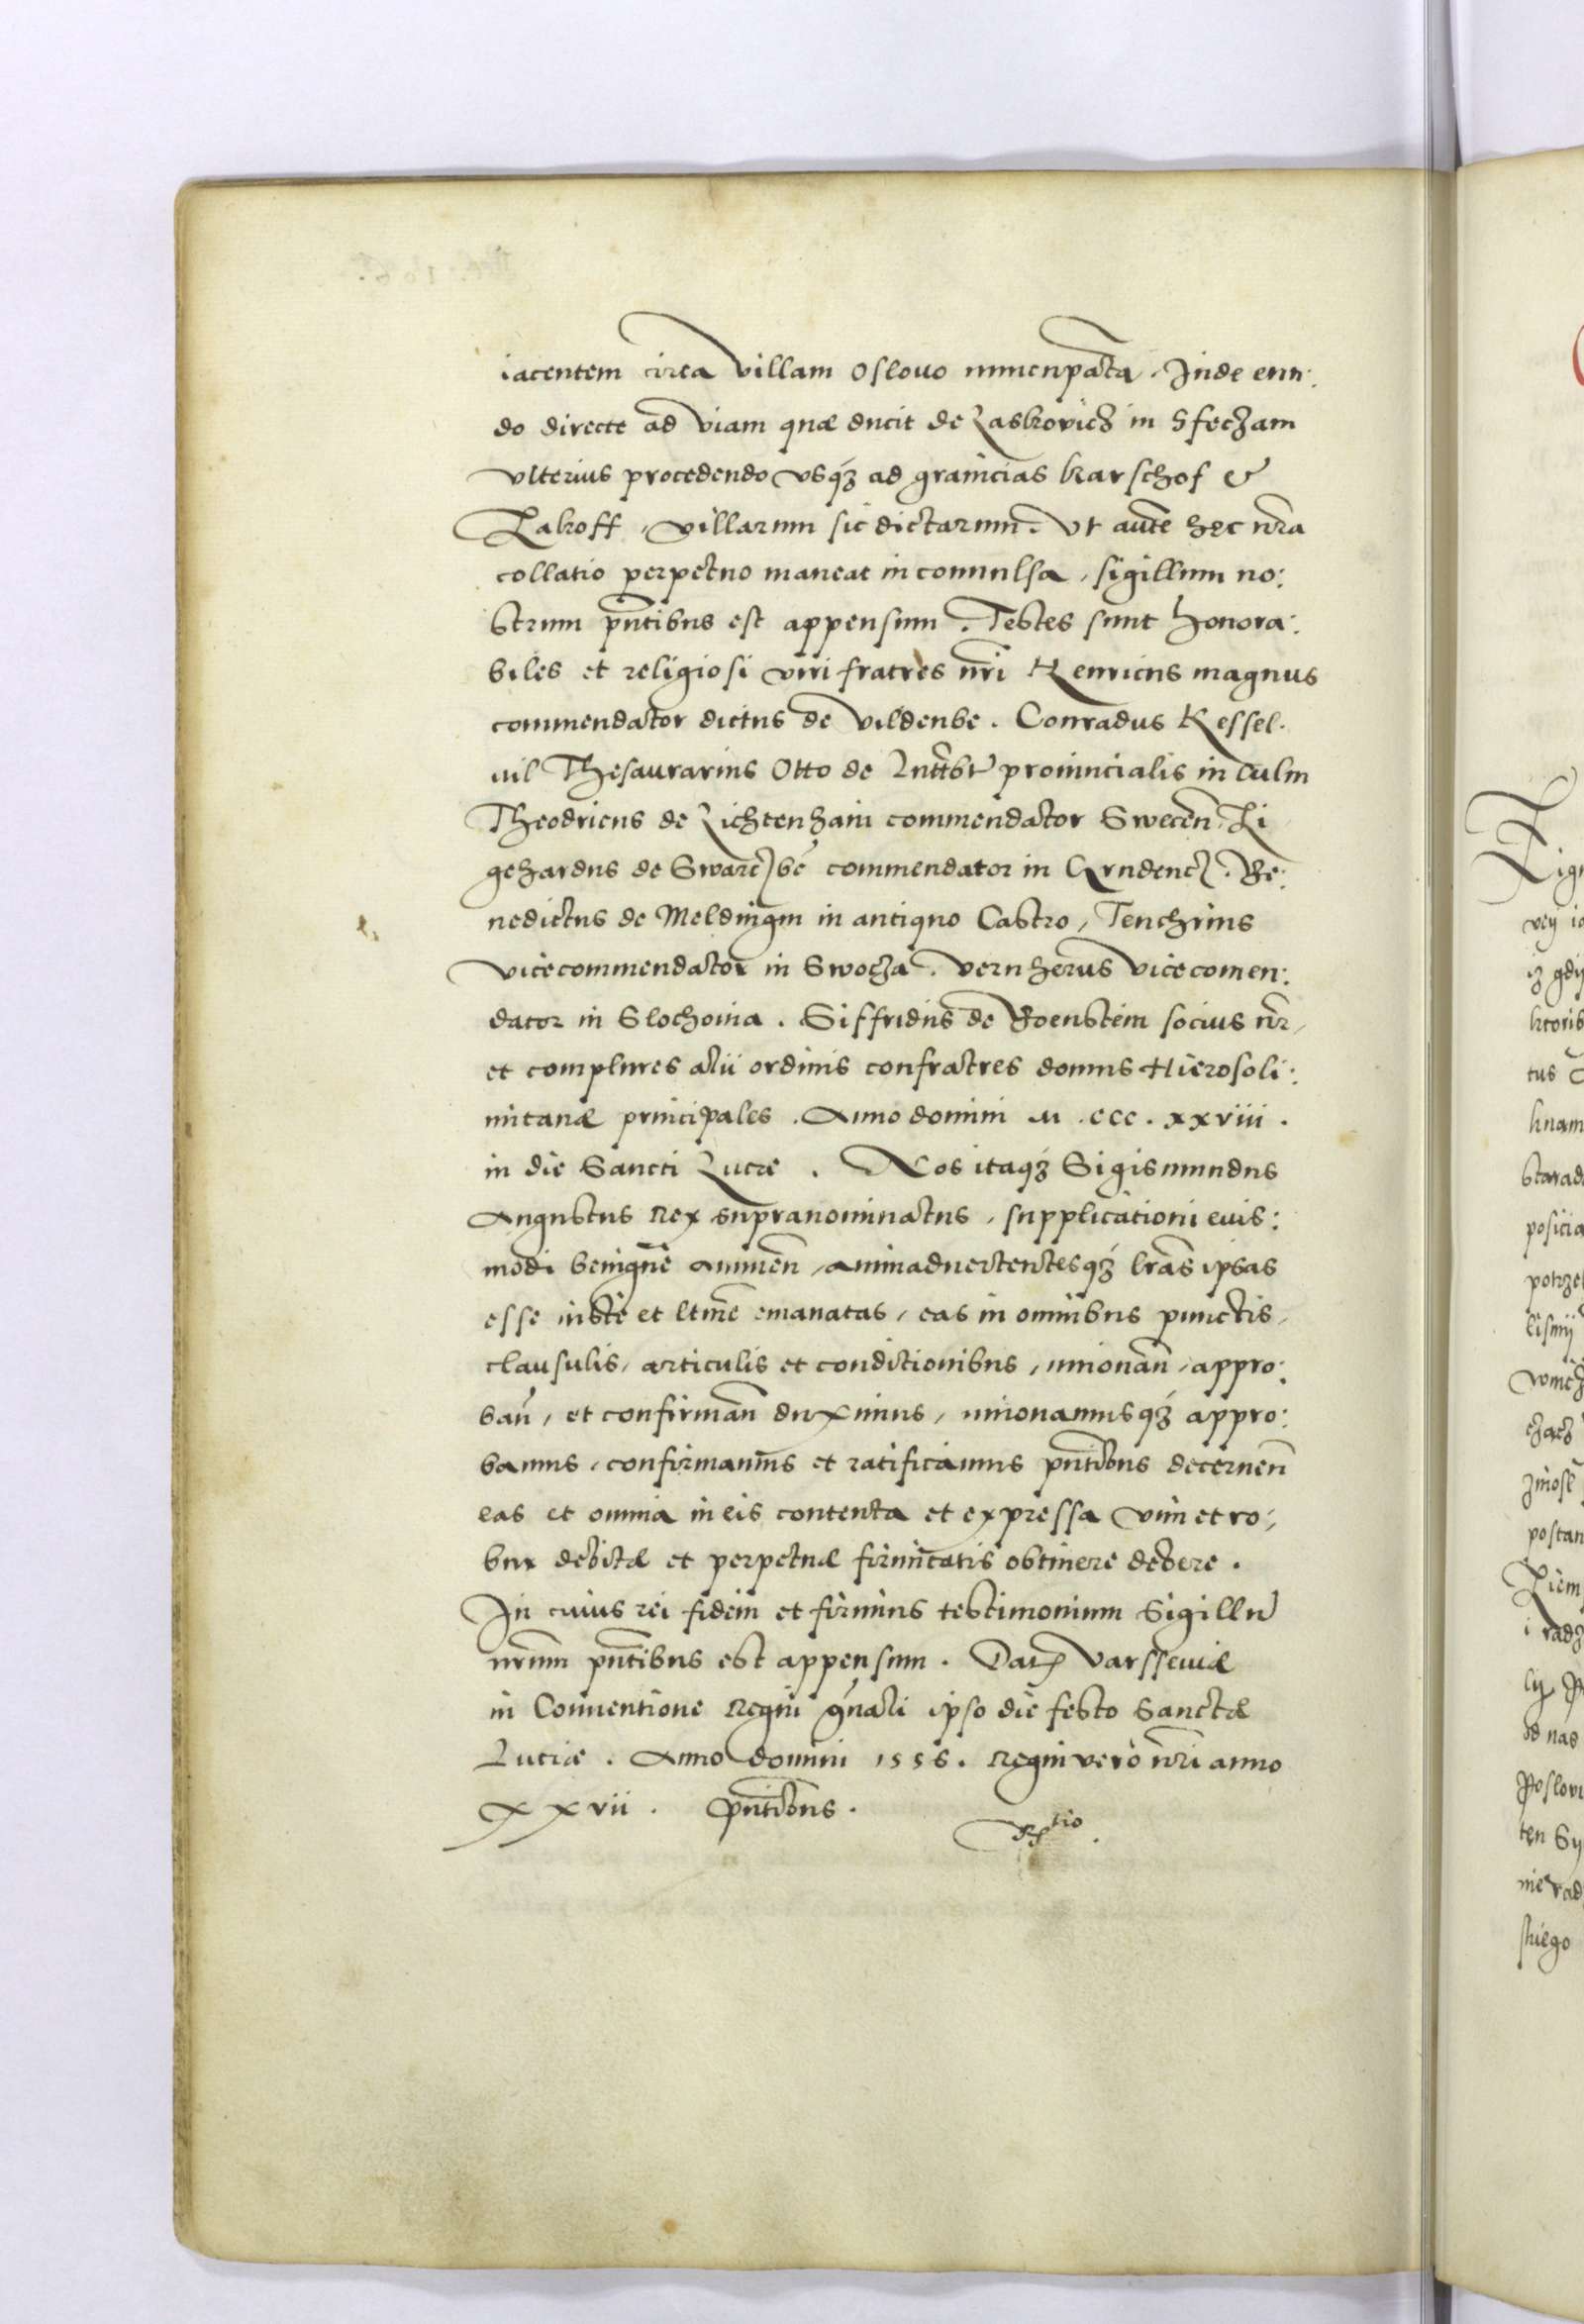 iacentem circa villam Oslouo nuncupata. Inde eun:
do directe ad viam quæ ducit de Laskovicz in Sfeczam
vlterius procedendo vsqz ad granicias Karschof &
Lakoff, villarum sic dictarum. Vt aute hęc nra
collatio perpetuo maneat inconuulsa, sigillum no:
strum pntibus est appensum. Testes sunt honora:
biles et religiosi viri fratres nri Henricus magnus
commendator dictus de Vildenbe. Conradus Kessel.
uil Thesaurarius Otto de prouincialis in Culm
Theodricus de Lichtenhain commendator Swecen. Li
gehardus de commendator in Grudencz. Be:
nedictus de Meldingin in antiquo Castro, Tenchrius
vicecommendator in Swocza. Vernherus vicecomen:
dator in Slochouia. Siffridus de Roenstein socius nr,
et complures alii ordinis confratres domus Hierosoli:
mitanæ principales. Anno domini M.CCC.xxviii.
in die Sancti Lucæ. Nos itaqz Sigismundus
Augustus Rex supranominatus, supplicationi euis:
modi benigne annuen, animaduertentesqz lras ipsas
esse iuste et ltime emanatas, eas in omnibus punctis,
clausulis, articulis et conditionibus, innouan, appro:
ban, et confirman duximus, innouamusqz appro:
bamus, confirmamus et ratificamus pntibus decernen
eas et omnia in eis contenta et expressa vim et ro:
bur debitæ et perpetuæ firmitatis obtinere debere.
In cuius rei fidem et firmius testimonium Sigillu
nrum pntibus est appensum. Dat Varsseuiæ
in Conuentione Regni gnali ipso die festo Sanctæ
Luciæ. Anno domini 1556. Regni vero nri anno
xxvii. pntibus.
Rtio.